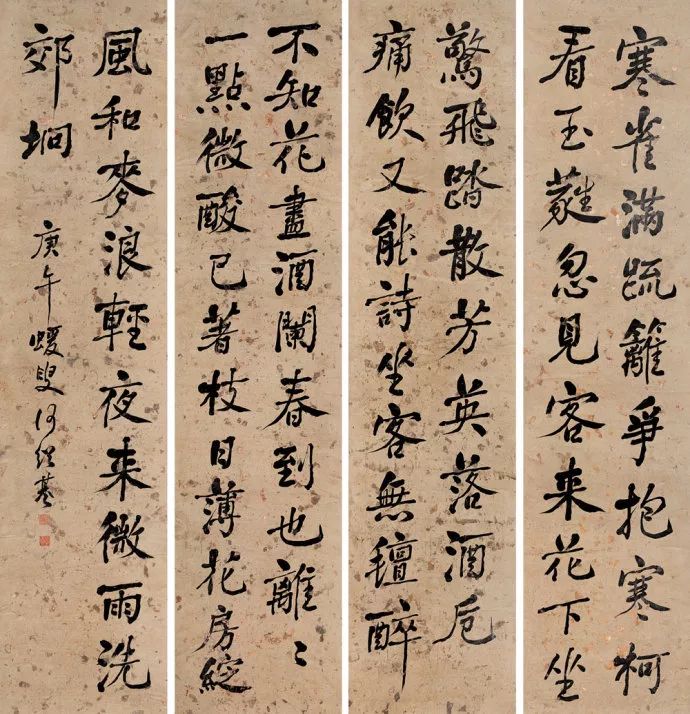 寒雀滿疏籬爭抱寒柯
看玉蕤忽見客来花下坐
驚飛踏散芳英落酒卮
痛飲又能詩坐客無氊醉
不知花盡酒闌春到也離〻
一點微酸已著枝日薄花房綻
風和麥浪輕夜来微雨洗
郊坰
庚午蝯叟何紹基